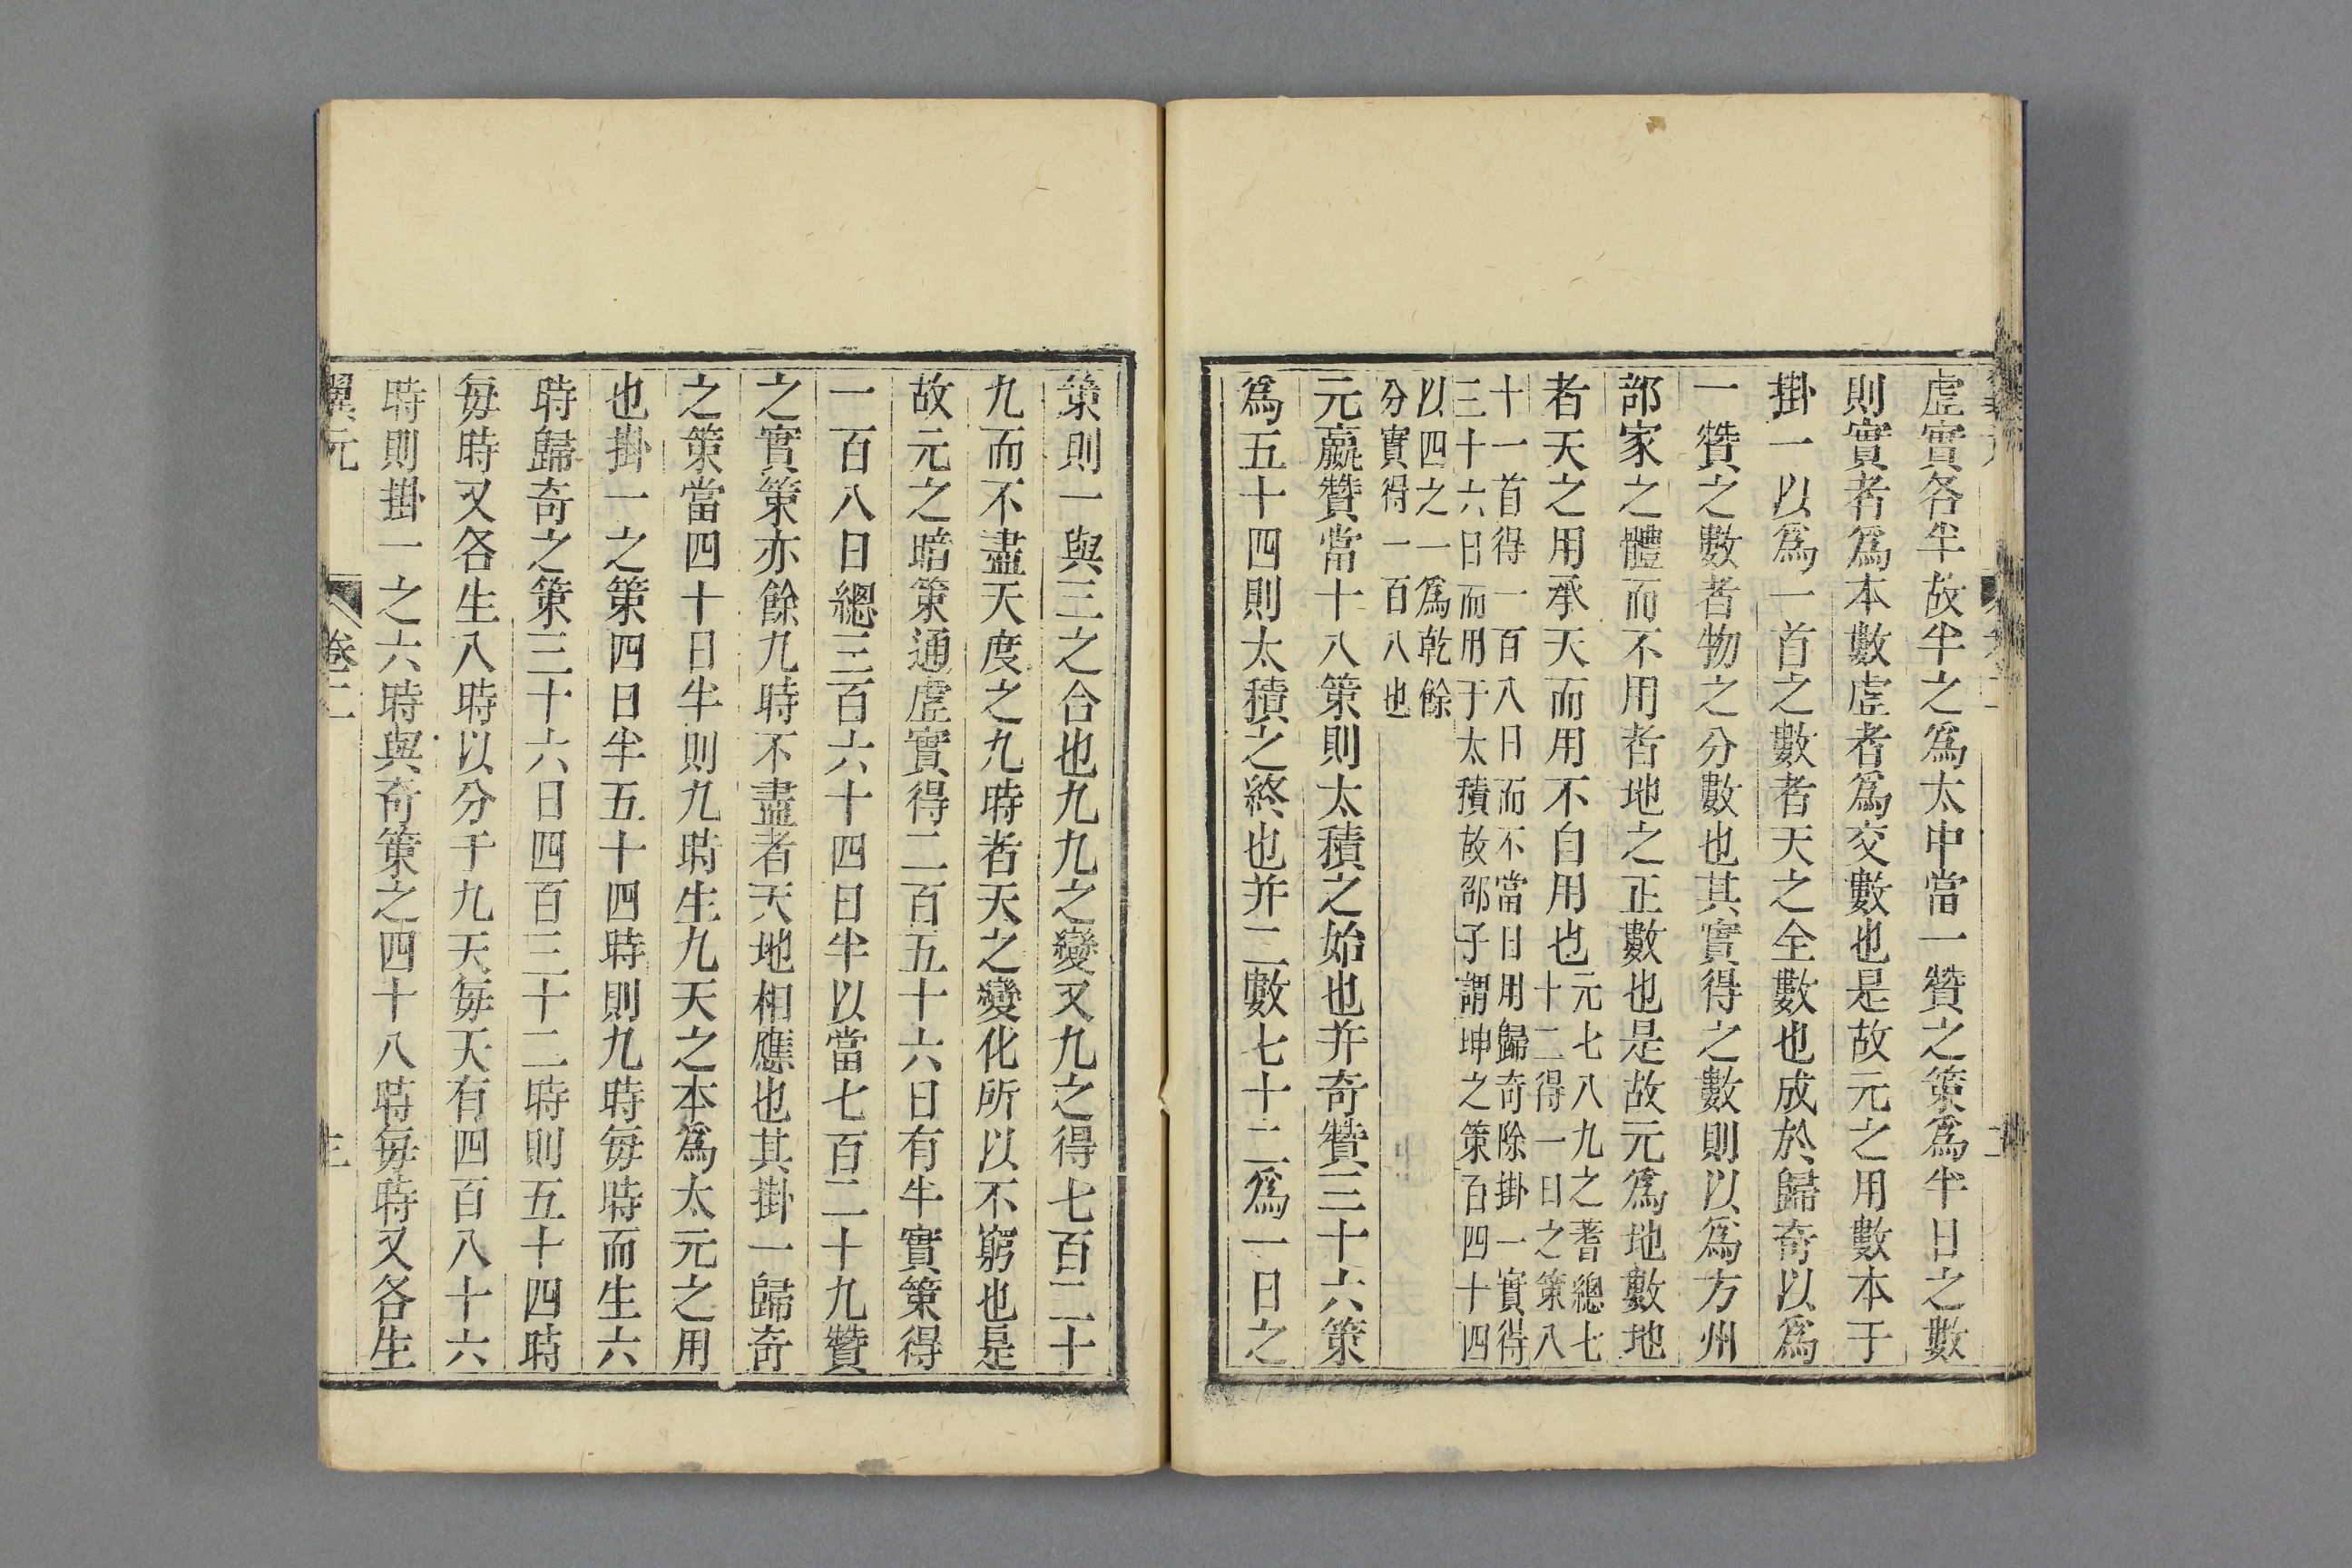 虛實各半故半之爲太中當一贊之策爲半日之數
則實者爲本數虛者爲交數也是故元之用數本于
掛一以爲一首之數者天之全數也成於歸奇以爲
一贊之數者物之分數也其實得之數則以爲方州
部家之體而不用者地之正數也是故元爲地數地
者天之用承天而用不自用也元七八九之蓍總七
十二得一日之策八
十一首得一百八日而不當日用歸奇除掛一實得
三十六日而用于太積故邵子謂坤之策百四十四
以四之一爲乾餘
分實得一百八也
元贏贊當十八策則太積之始也并奇贊三十六策
爲五十四則太積之終也并二數七十二爲一日之
策則一與三之合也九九之變又九之得七百二十
九而不盡天度之九時者天之變化所以不窮也是
故元之暗策通虛實得二百五十六日有半實策得
一百八日總三百六十四日半以當七百二十九贊
之實策亦餘九時不盡者天地相應也其掛一歸奇
之策當四十日半則九時生九天之本爲太元之用
也掛一之策四日半五十四時則九時每時而生六
時歸奇之策三十六日四百三十二時則五十四時
每時又各生八時以分于九天每天有四百八十六
時則掛一之六時與奇策之四十八時每時又各生
翼元 卷二 三